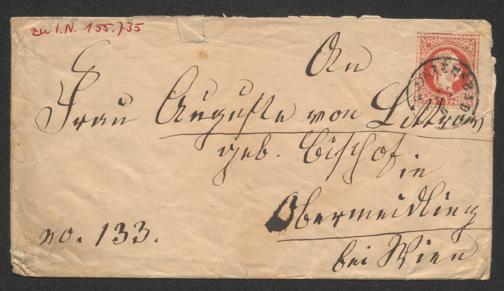 zu I.N. 155.735
An
Frau Auguste von Littrow
geb. Bischof in
Obermeidling
no. 133.
bei Wien